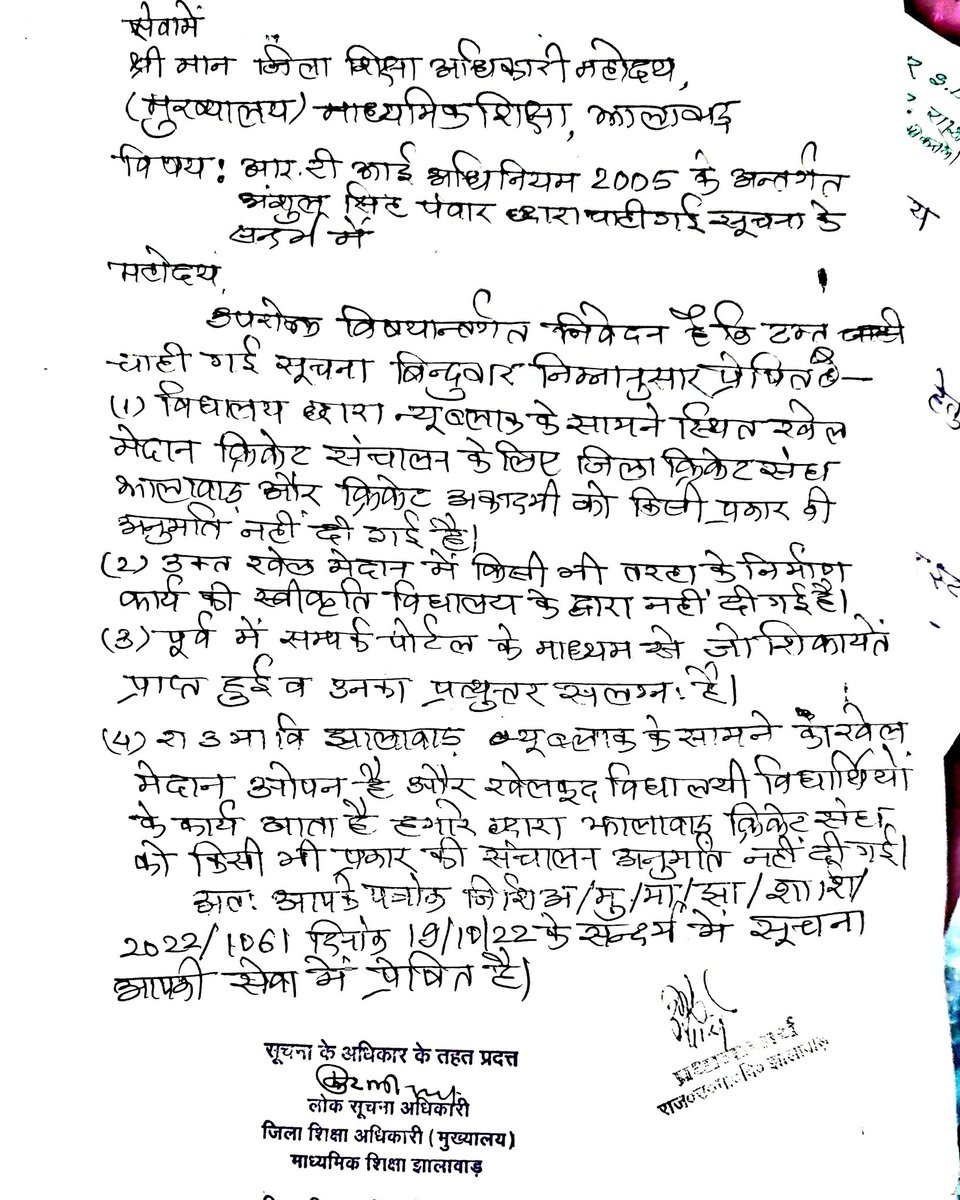 सेवामें
श्री मान जिला शिक्षा अधिकारी महोदय,
(मुख्यालय) माध्यमिक शिक्षा, झालावाड़
विषय: आर.टी आई अधिनियम 2005 के अन्तर्गत
अंशुल सिंह पंवार द्वारा चाही गई सूचना के
सन्दर्भ में
महोदय,
उपरोक्त विषयान्तर्गत निवेदन है कि उक्त
चाही गई सूचना बिन्दुवार निम्नानुसार प्रेषित है—
(1) विधालय द्वारा न्यू ब्लाक के सामने स्थित खेल
मेदान क्रिकेट संचालन के लिए जिला क्रिकेट संघ
झालावाड़ और क्रिकेट अकादमी को किसी प्रकार की
अनुमति नहीं दी गई है।
(2) उक्त खेल मेदान में किसी भी तरह के निर्माण
कार्य की स्वीकृति विधालय के द्वारा नहीं दी गई है।
(3) पूर्व में सम्पर्क पोर्टल के माध्यम से जो शिकायतें
प्राप्त हुई व उनका प्रत्युत्तर सलग्न: है।
(4) रा उ मा वि झालावाड़ न्यू ब्लाक के सामने का खेल
मेदान ओपन है और खेलकूद विधालयी विधार्थियों
के कार्य आता है हमारे द्वारा झालावाड़ क्रिकेट संघ
को किसी भी प्रकार की संचालन अनुमति नहीं दी गई।
अत: आपके पत्रांक जिशिअ/मु/मा/झा/शाशि/
2022/1061 दिनांक 19/10/22 के सन्दर्भ में सूचना
आपकी सेवा में प्रेषित है।
प्रधानाचार्य
राज०उ०मा०वि० झालावाड़
सूचना के अधिकार के तहत प्रदत्त
लोक सूचना अधिकारी
जिला शिक्षा अधिकारी (मुख्यालय)
माध्यमिक शिक्षा झालावाड़